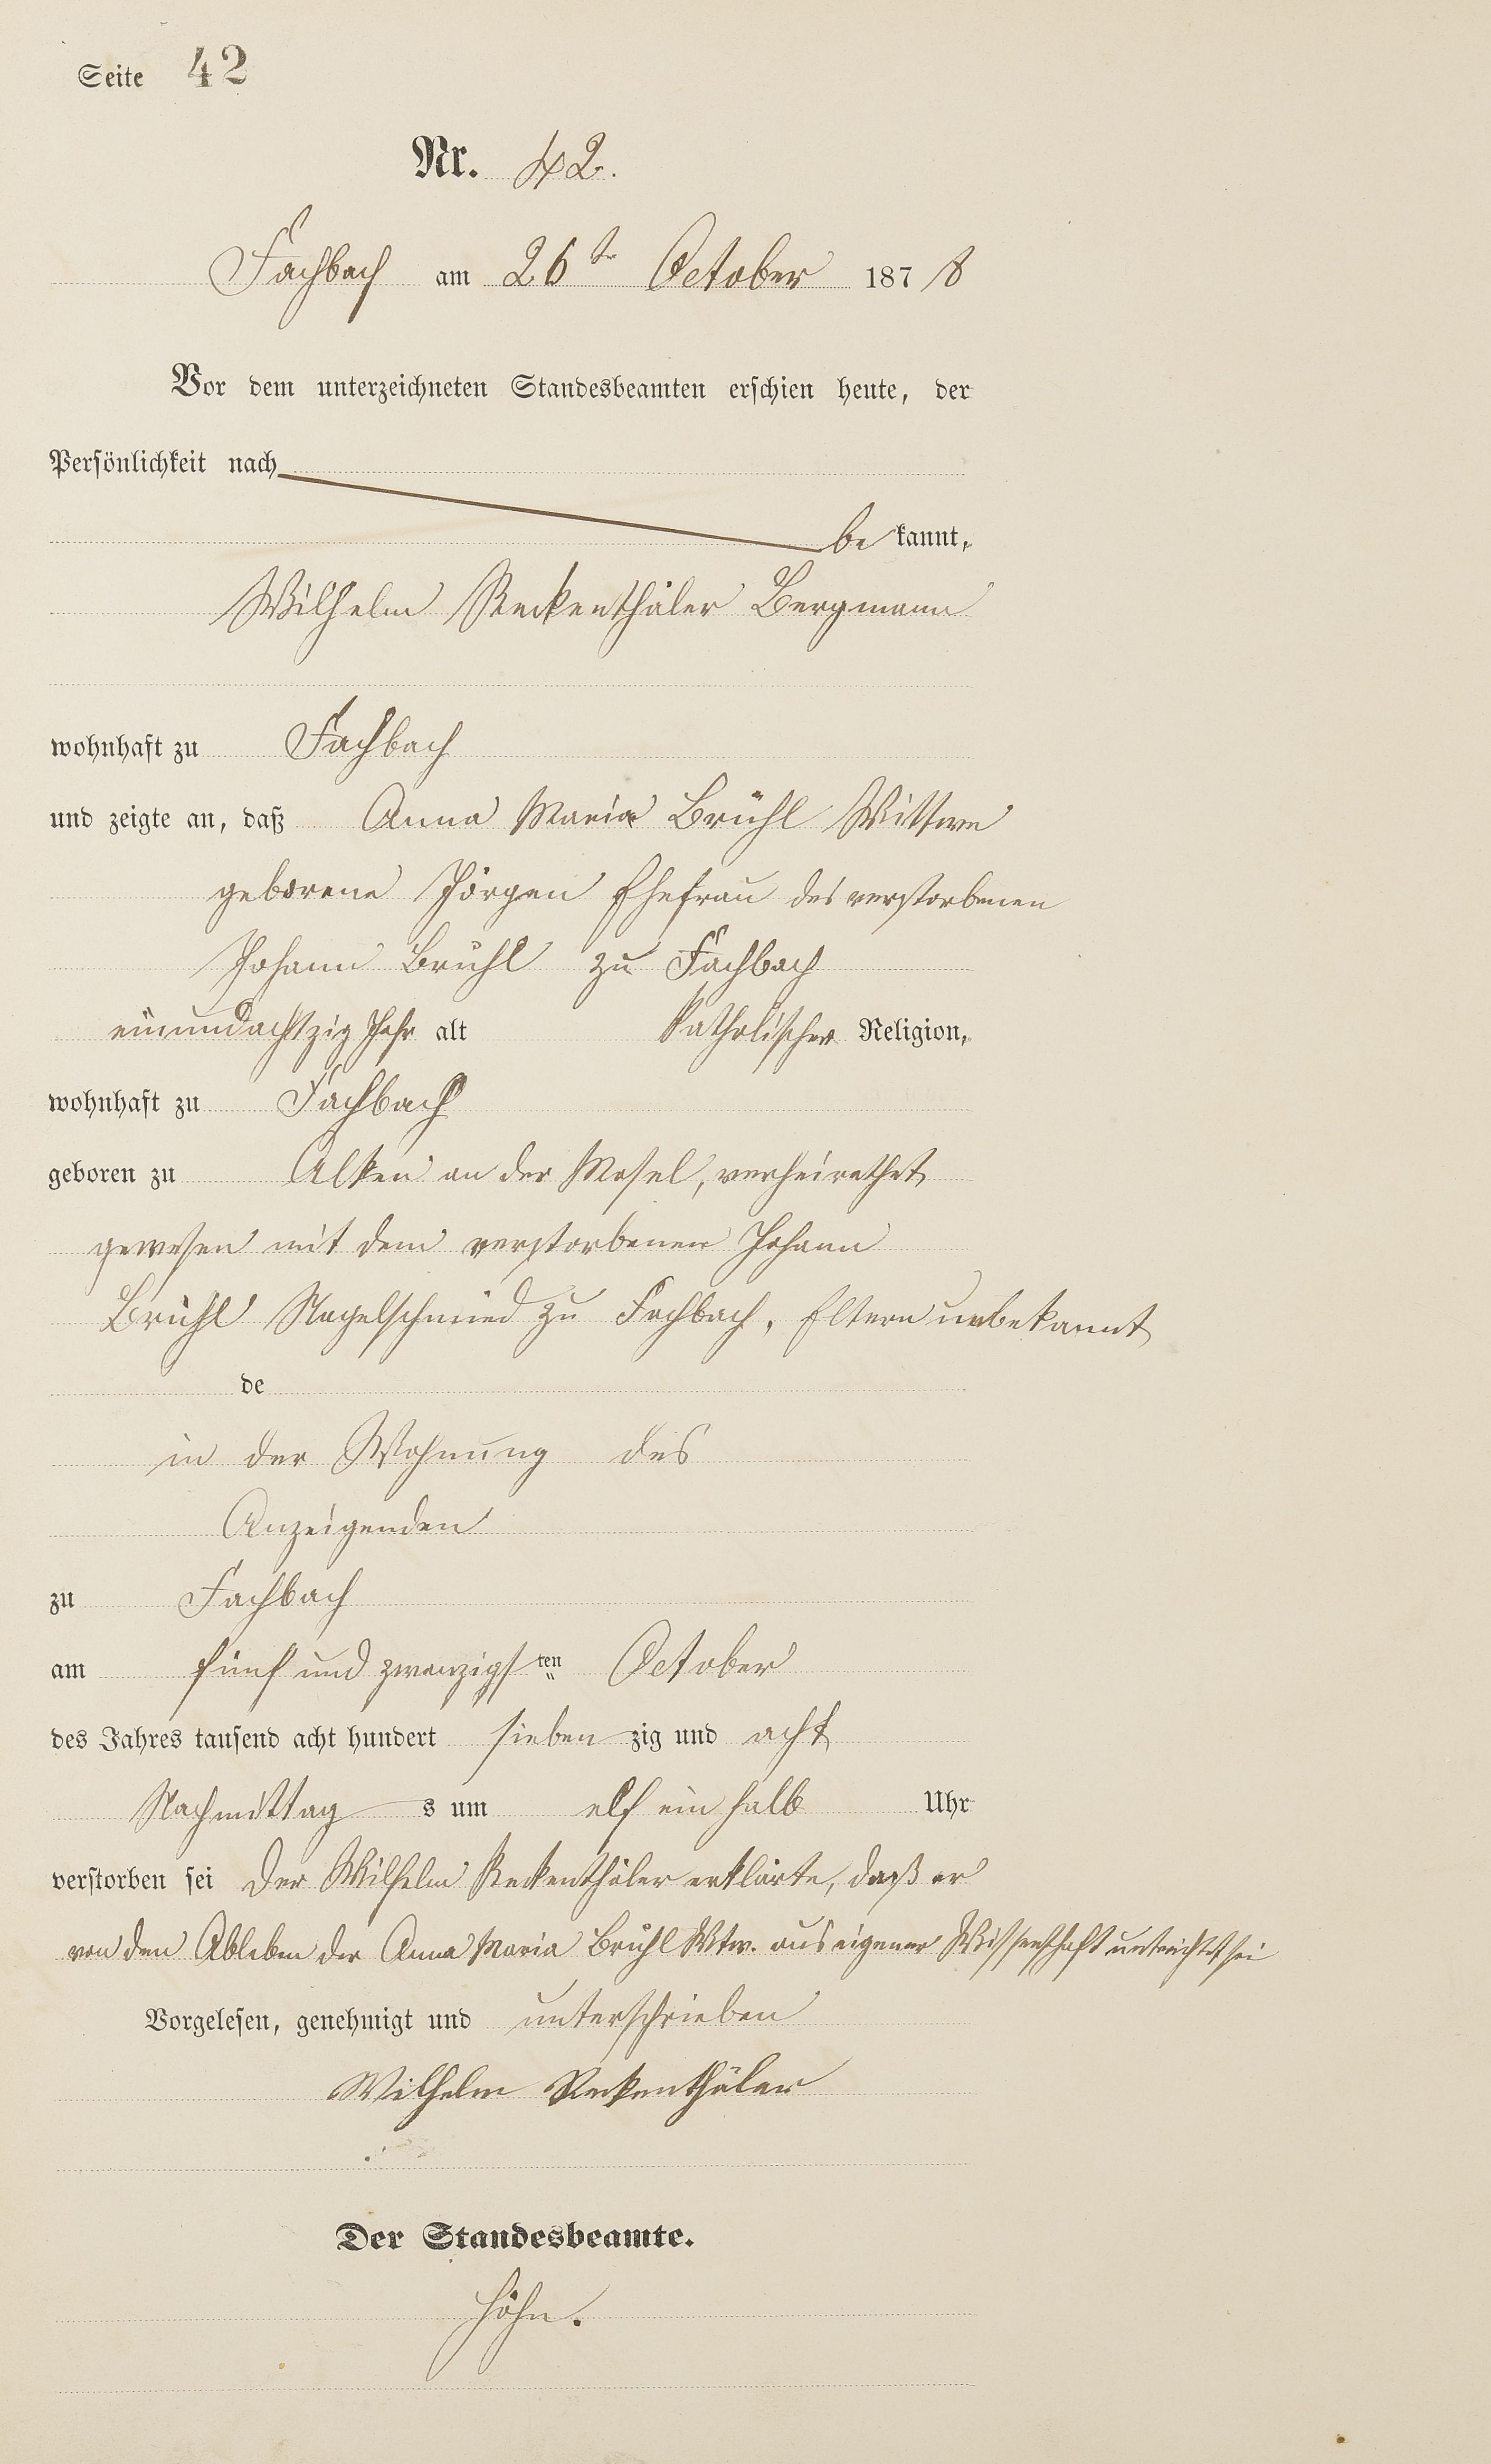 Seite 42
Nr. 42.
Fachbach am 26tn October 1878
Vor dem unterzeichneten Standesbeamten erschien heute, der
Persönlichkeit nach
be kannt,
Wilhelm Reckenthäler Bergmann
wohnhaft zu Fachbach
und zeigte an, daß Anna Maria Brühl Wittwe
geborene Jörgen Ehefrau des verstorbenen
Johann Brühl zu Fachbach
einundachtzig Jahr alt katholischer Religion,
wohnhaft zu Fachbach
geboren zu Alken an der Mosel, verheirathet
gewesen mit dem verstorbenen Johann
Brühl Nagelschmied zu Fachbach, Eltern unbekannt
de
in der Wohnung des
Anzeigenden
zu Fachbach
am fünf und zwanzigsten October
des Jahres tausend acht hundert sieben zig und acht
Nachmittag s um elf ein halb Uhr
verstorben sei Der Wilhelm Reckenthäler erklärte, daß er
von dem Ableben der Anna Maria Brühl Wtw. aus eigener Wissenschaft unterrichtet sei
Vorgelesen, genehmigt und unterschrieben
Wilhelm Reckenthäler
Der Standesbeamte.
Höhn.